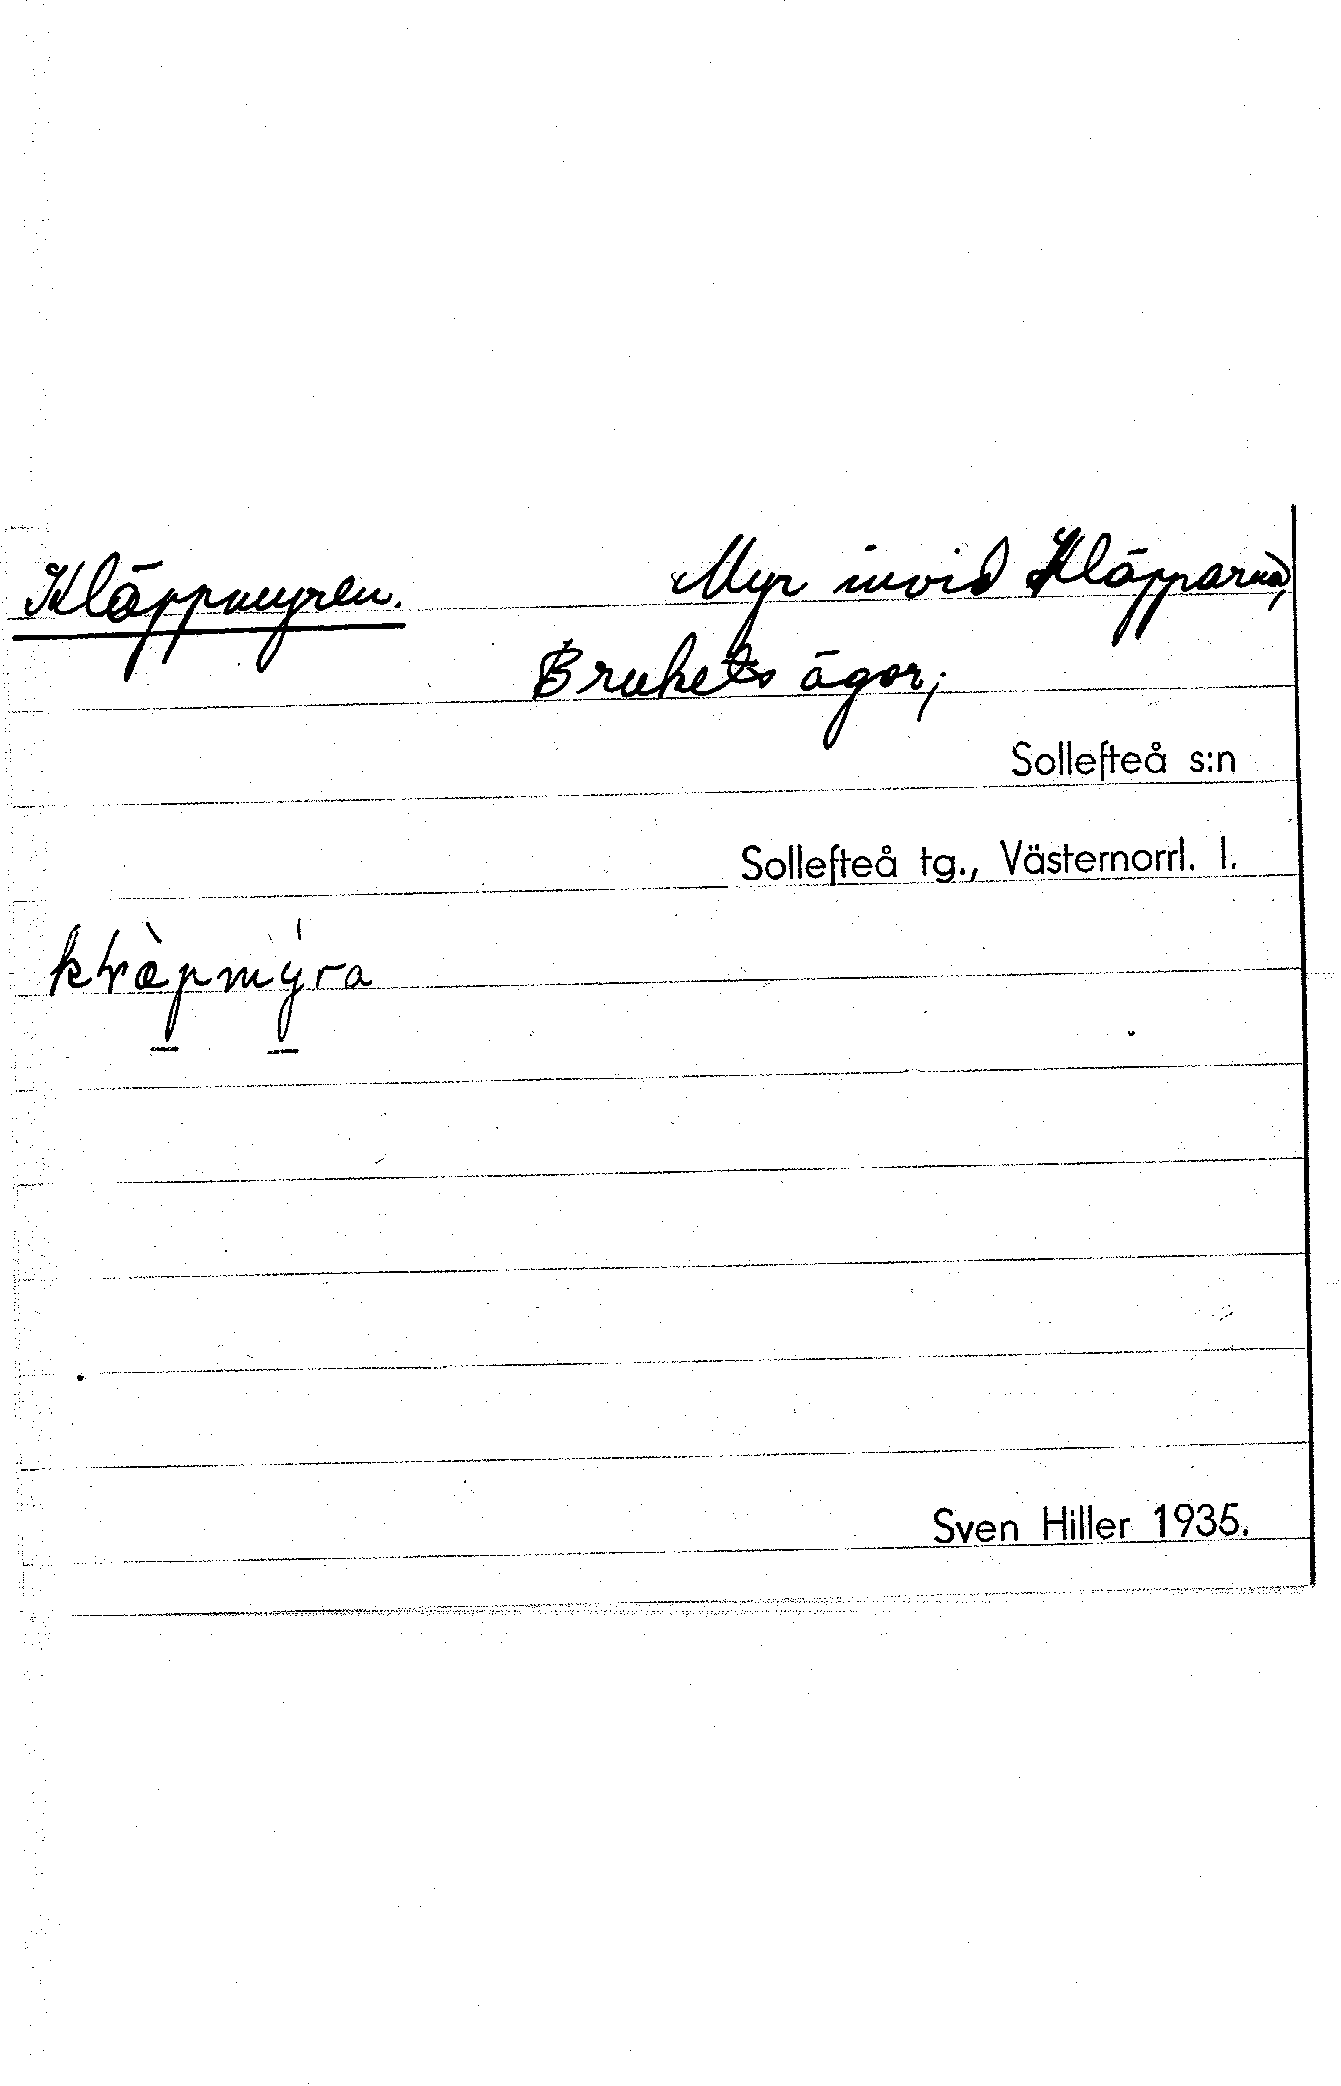 Kläppmyren. Myr invid Kläpparna,
Brukets ägor;
Sollefteå s:n
Sollefteå tg., Västernorrl. l.
Sven Hiller 1935.